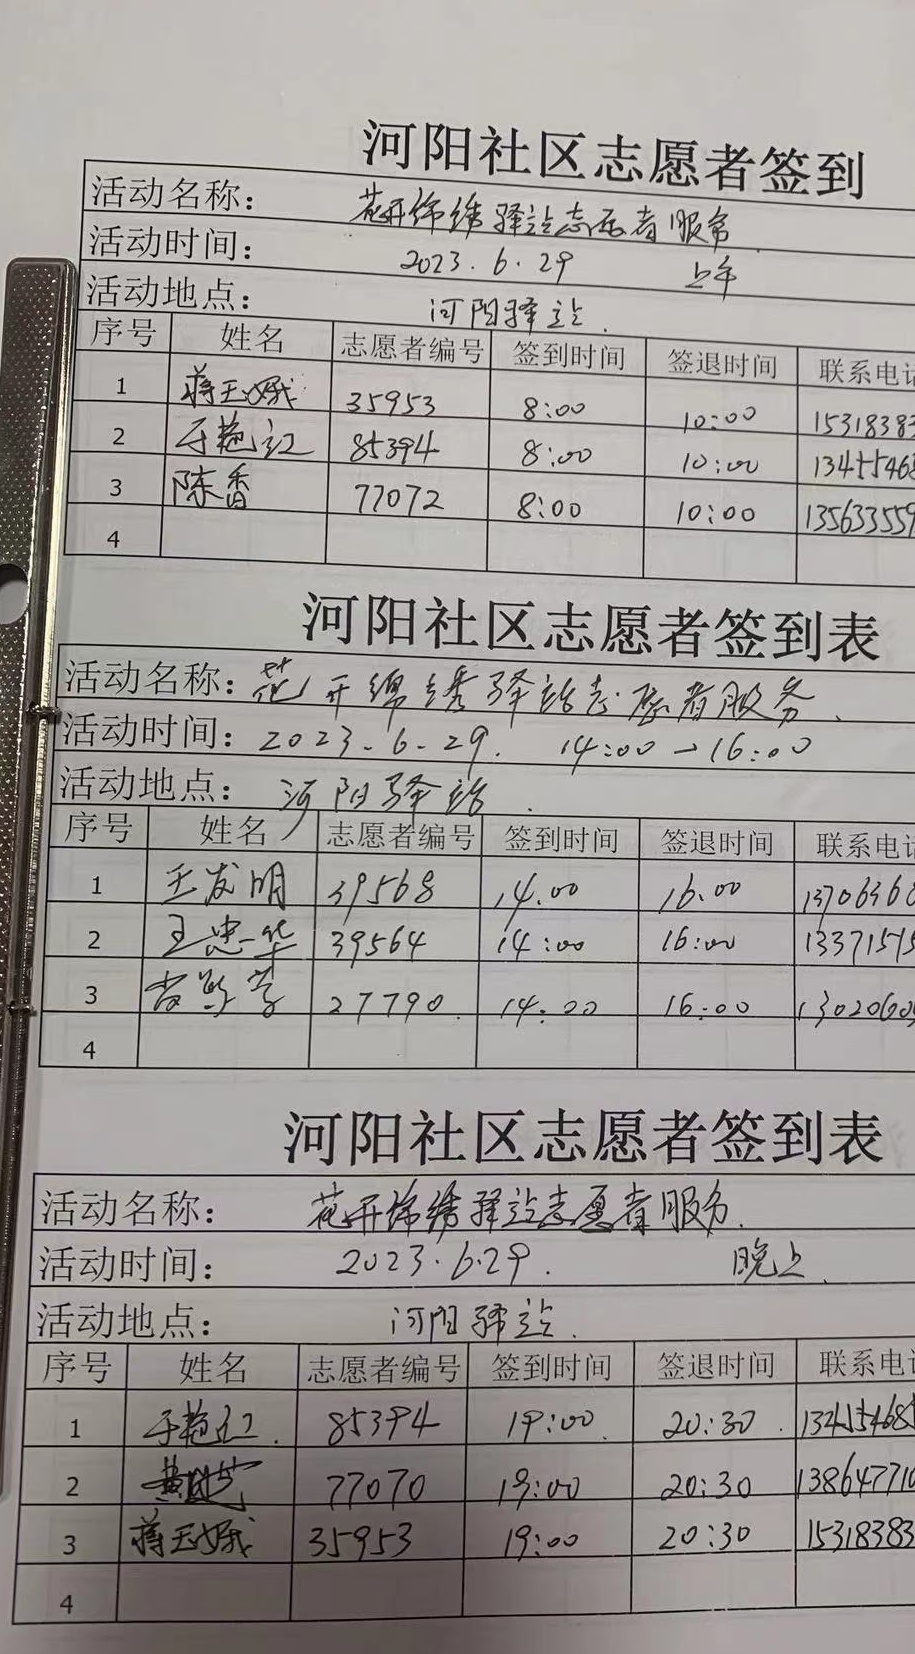 河阳社区志愿者签到
活动名称: 花开锦绣驿站志愿者服务
活动时间: 2023.6.29 上午
活动地点: 河阳驿站.
序号 姓名 志愿者编号 签到时间 签退时间 联系电
1 蒋玉娥 35953 8:00 10:00 1531838
2 于艳红 85394 8:00 10:00 13455468
3 陈香 77072 8:00 10:00 135633559
4
河阳社区志愿者签到表
活动名称: 花开绵绣驿站志愿者服务.
活动时间: 2023.6.29. 14:00—16:00
活动地点: 河阳驿站.
序号 姓名 志愿者编号 签到时间 签退时间 联系电
1 王发明 39568 14.00 16.00 1370636
2 王忠华 39564 14:00 16:00 1337151
3 27790. 14:00 16:00 1302060
4
河阳社区志愿者签到表
活动名称: 花开锦绣驿站志愿者服务.
活动时间: 2023.6.29. 晚上.
活动地点: 河阳驿站.
序号 姓名 志愿者编号 签到时间 签退时间 联系电
1 于艳红. 85394 19:00. 20:30. 13455468
2 77070 19:00 20:30 138647710
3 蒋玉娥 35953 19:00 20:30 15318383
4